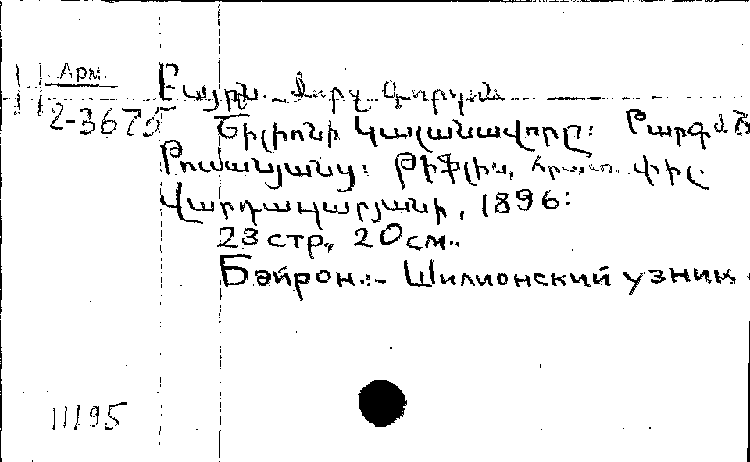 Арм.
2-3675
Բայրն. Ջորջ Գորդոն
Շիլիոնի կալանավորը: Թարգմ
Թումանյանց: Թիֆլիս, փիլ
Վարդապարյանի, 1896:
23 стр., 20 см.
Байрон.- Шильонский узник
11195